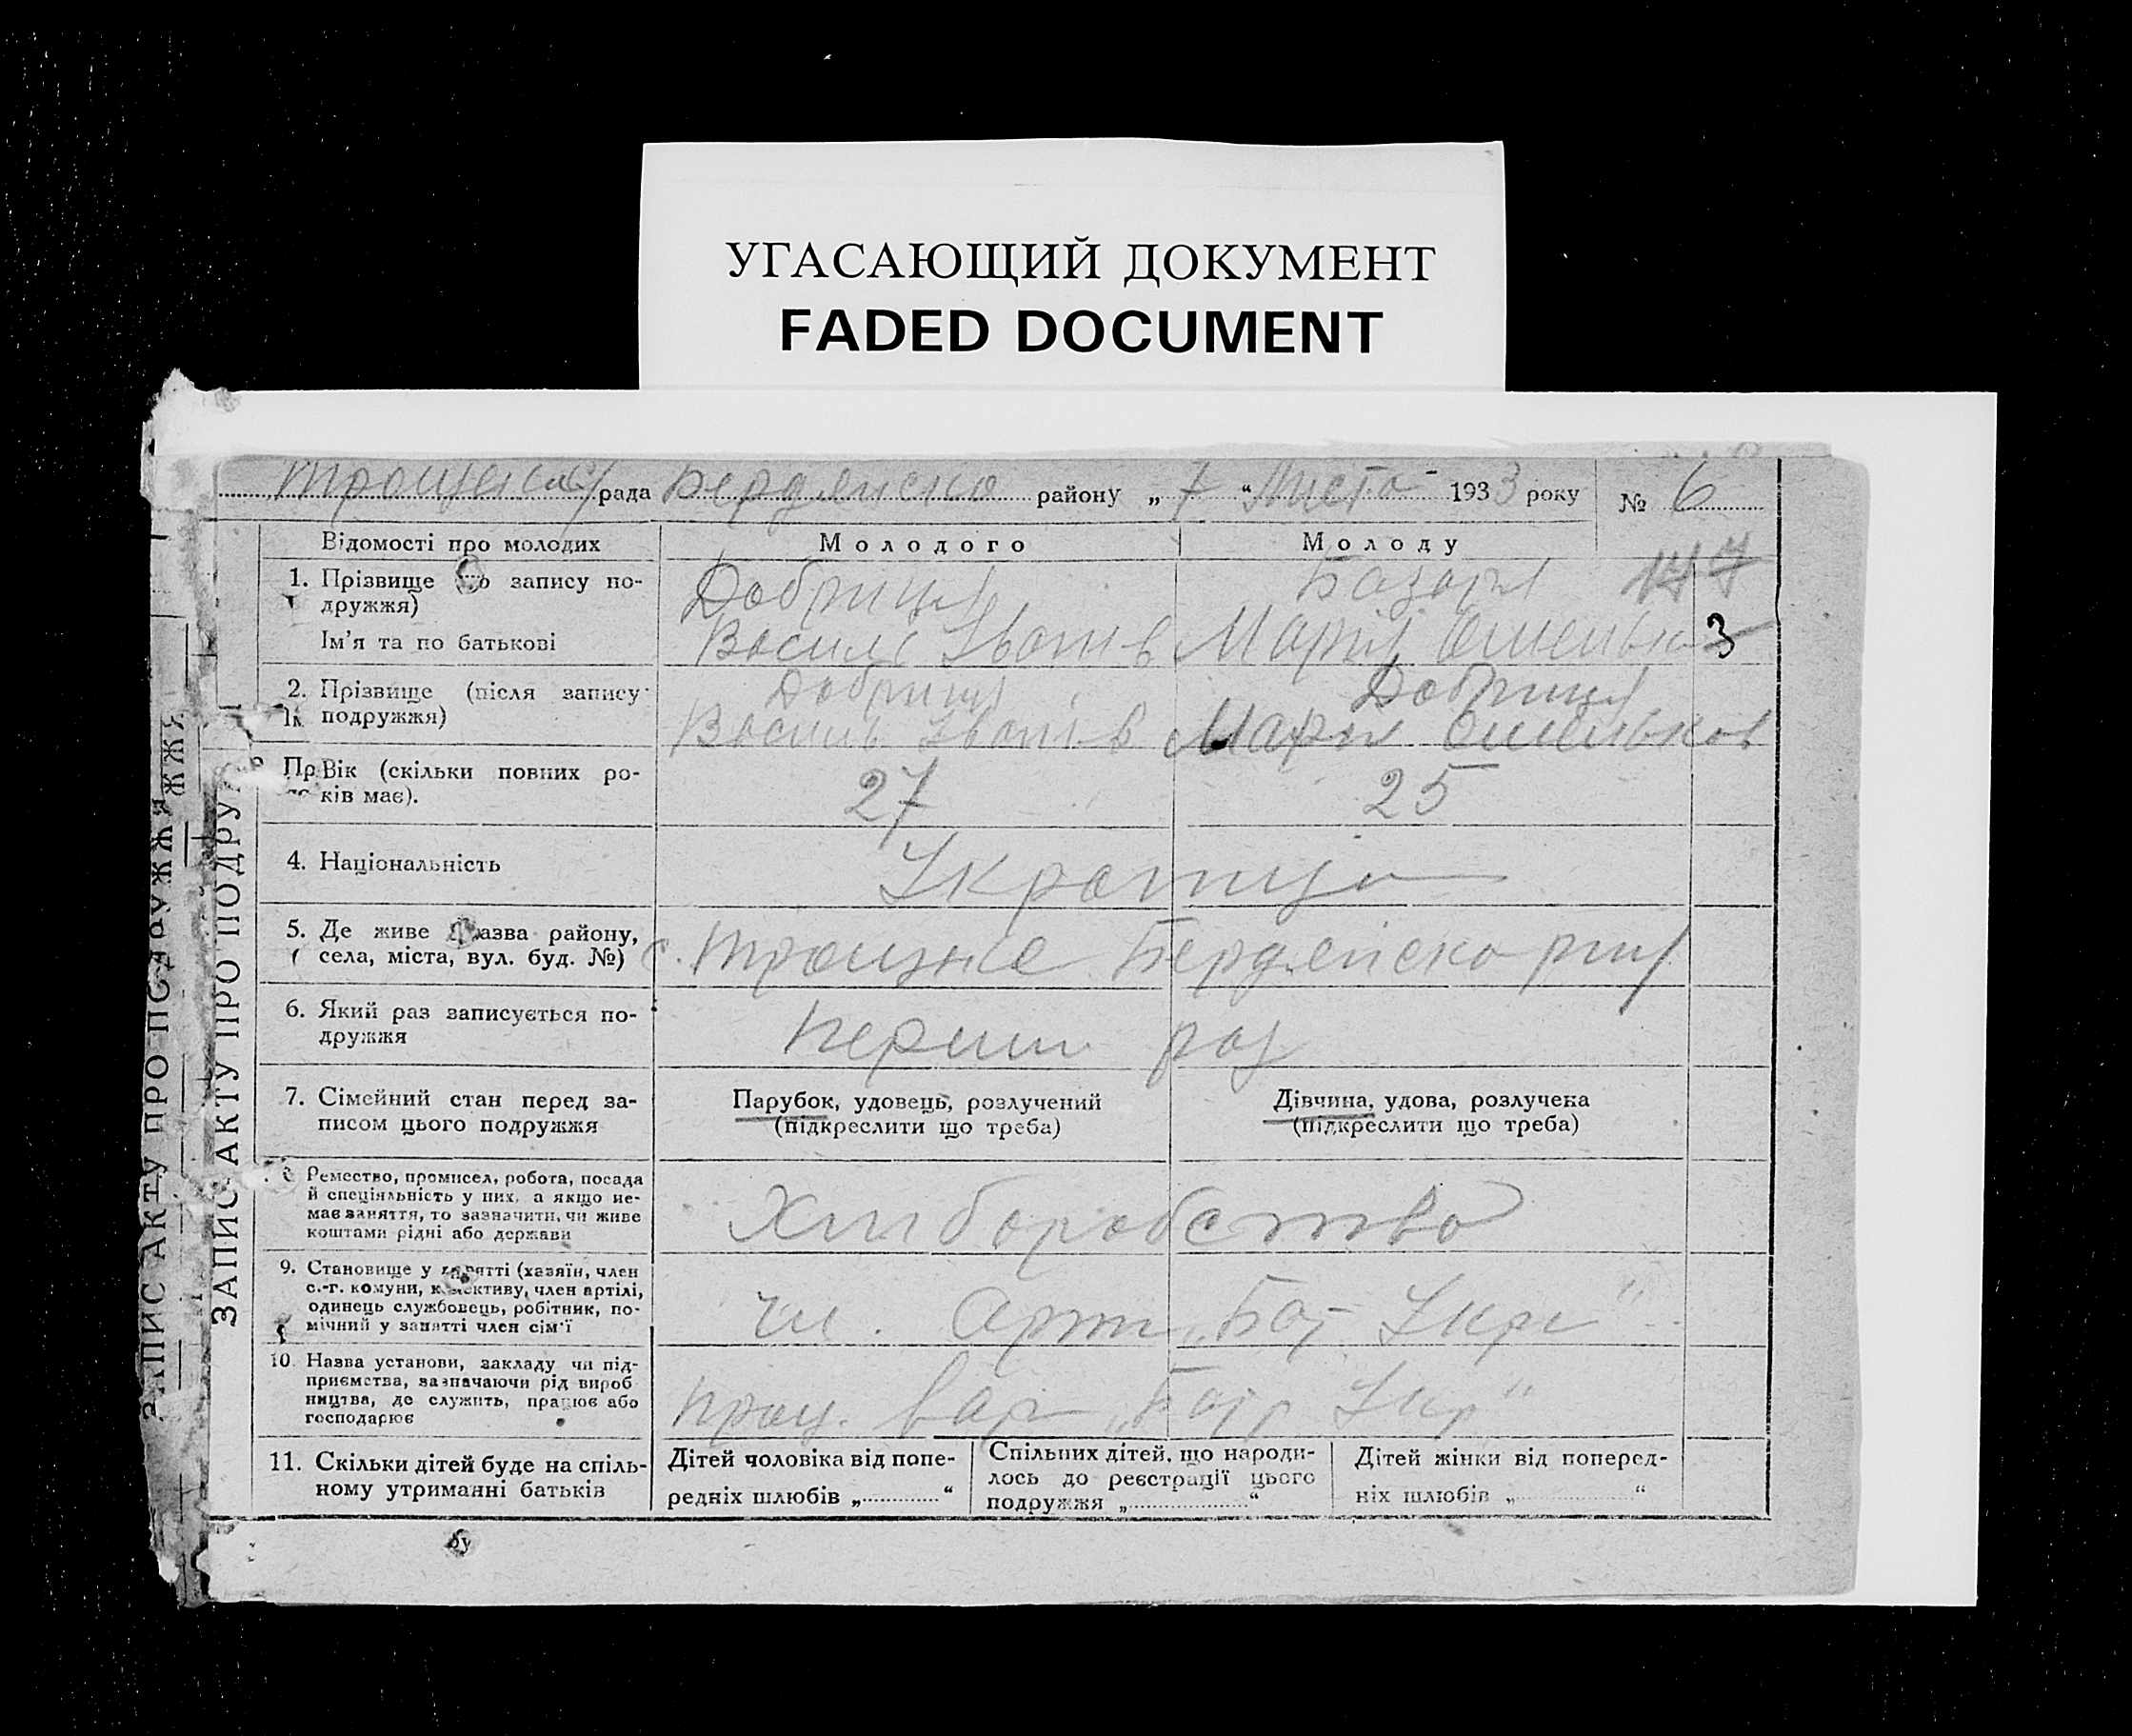 УГАСАЮЩИЙ ДОКУМЕНТ
FADED DOCUMENT
рада Бердянско району „ 7 “ Листо 1933 року № 6
Відомості про молодих Молодого Молоду
1. Прізвище запису по-
дружжя)
Добриця Базара
Ім’я та по батькові
Василь Іванів Марія Омелько
3
2. Прізвище (після запису
подружжя)
Добриця Добриця
Василь Іванів Марія Омельков
Вік (скільки повних ро-
ків має).
27 25
4. Національність
5. Де живе азва району,
села, міста, вул. буд. №)
с. Троцьке Бердянско
6. Який раз записується по-
дружжя
перший раз
7. Сімейний стан перед за-
писом цього подружжя
Парубок, удовець, розлучений
(підкреслити що треба)
Дівчина, удова, розлучена
(підкреслити що треба)
Ремество, промисел, робота, посада
й спеціяльність у них, а якщо не-
має заняття, то зазначити, чи живе
коштами рідні або держави
Хліборобство
9. Становище у занятті (хазяїн, член
с.-г. комуни, колективу, член артілі,
одинець службовець, робітник, по-
мічний у занятті член сім’ї
чл. Арт
10. Назва установи, закладу чи під-
приємства, зазначаючи рід вироб
ництва, де служить, працює або
господарює
прац.
11. Скільки дітей буде на спіль-
ному утриманні батьків
Дітей чоловіка від попе-
редніх шлюбів „ “
Спільних дітей, що народи-
лось до реєстрації цього
подружжя „ “
Дітей жінки від поперед-
ніх шлюбів „ “
ЗАПИС АКТУ ПРО ПОДРУ
ЗАПИС АКТУ ПРО ПОДРУЖЖЯ
ЖЖЯ
бу